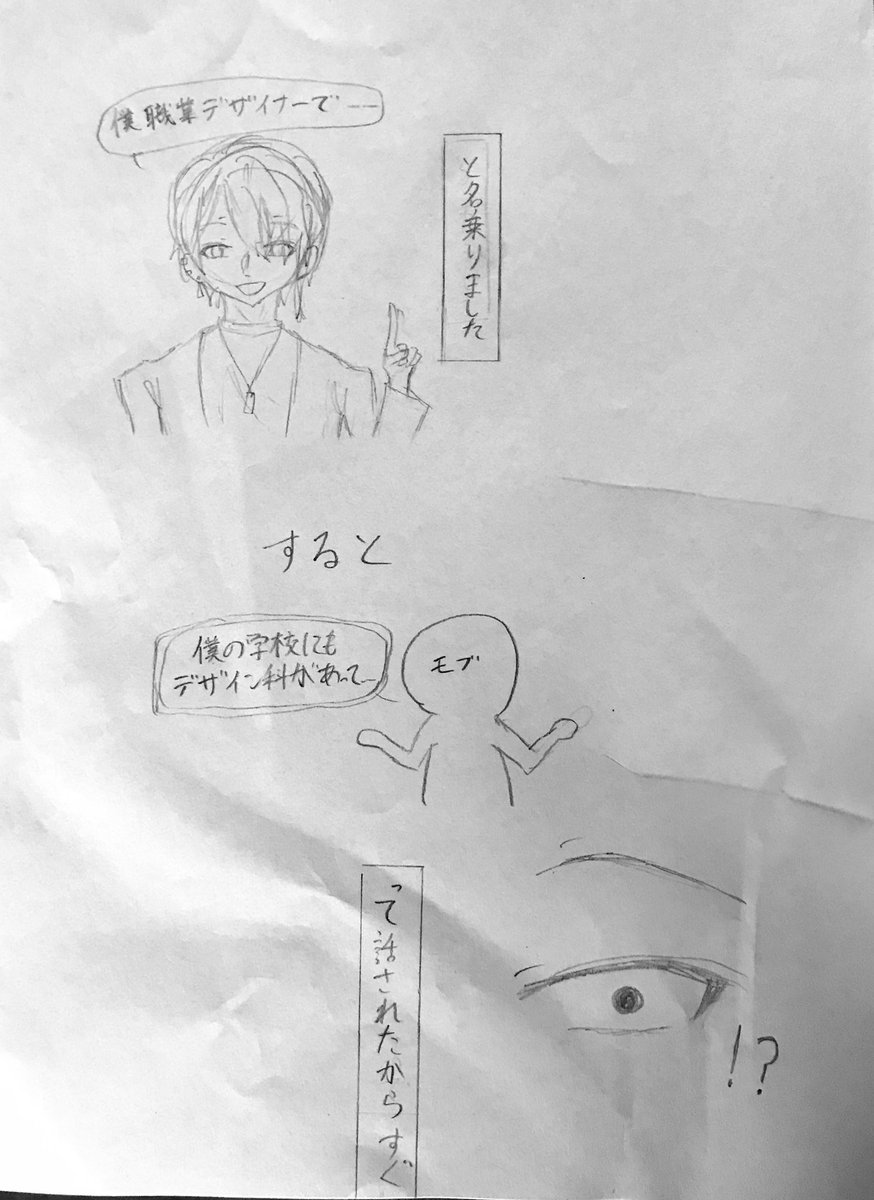 僕職業デザイナーで――
と名乗りました
すると
僕の学校にも
デザイン科があって…
モブ
って話されたからすぐ
!?